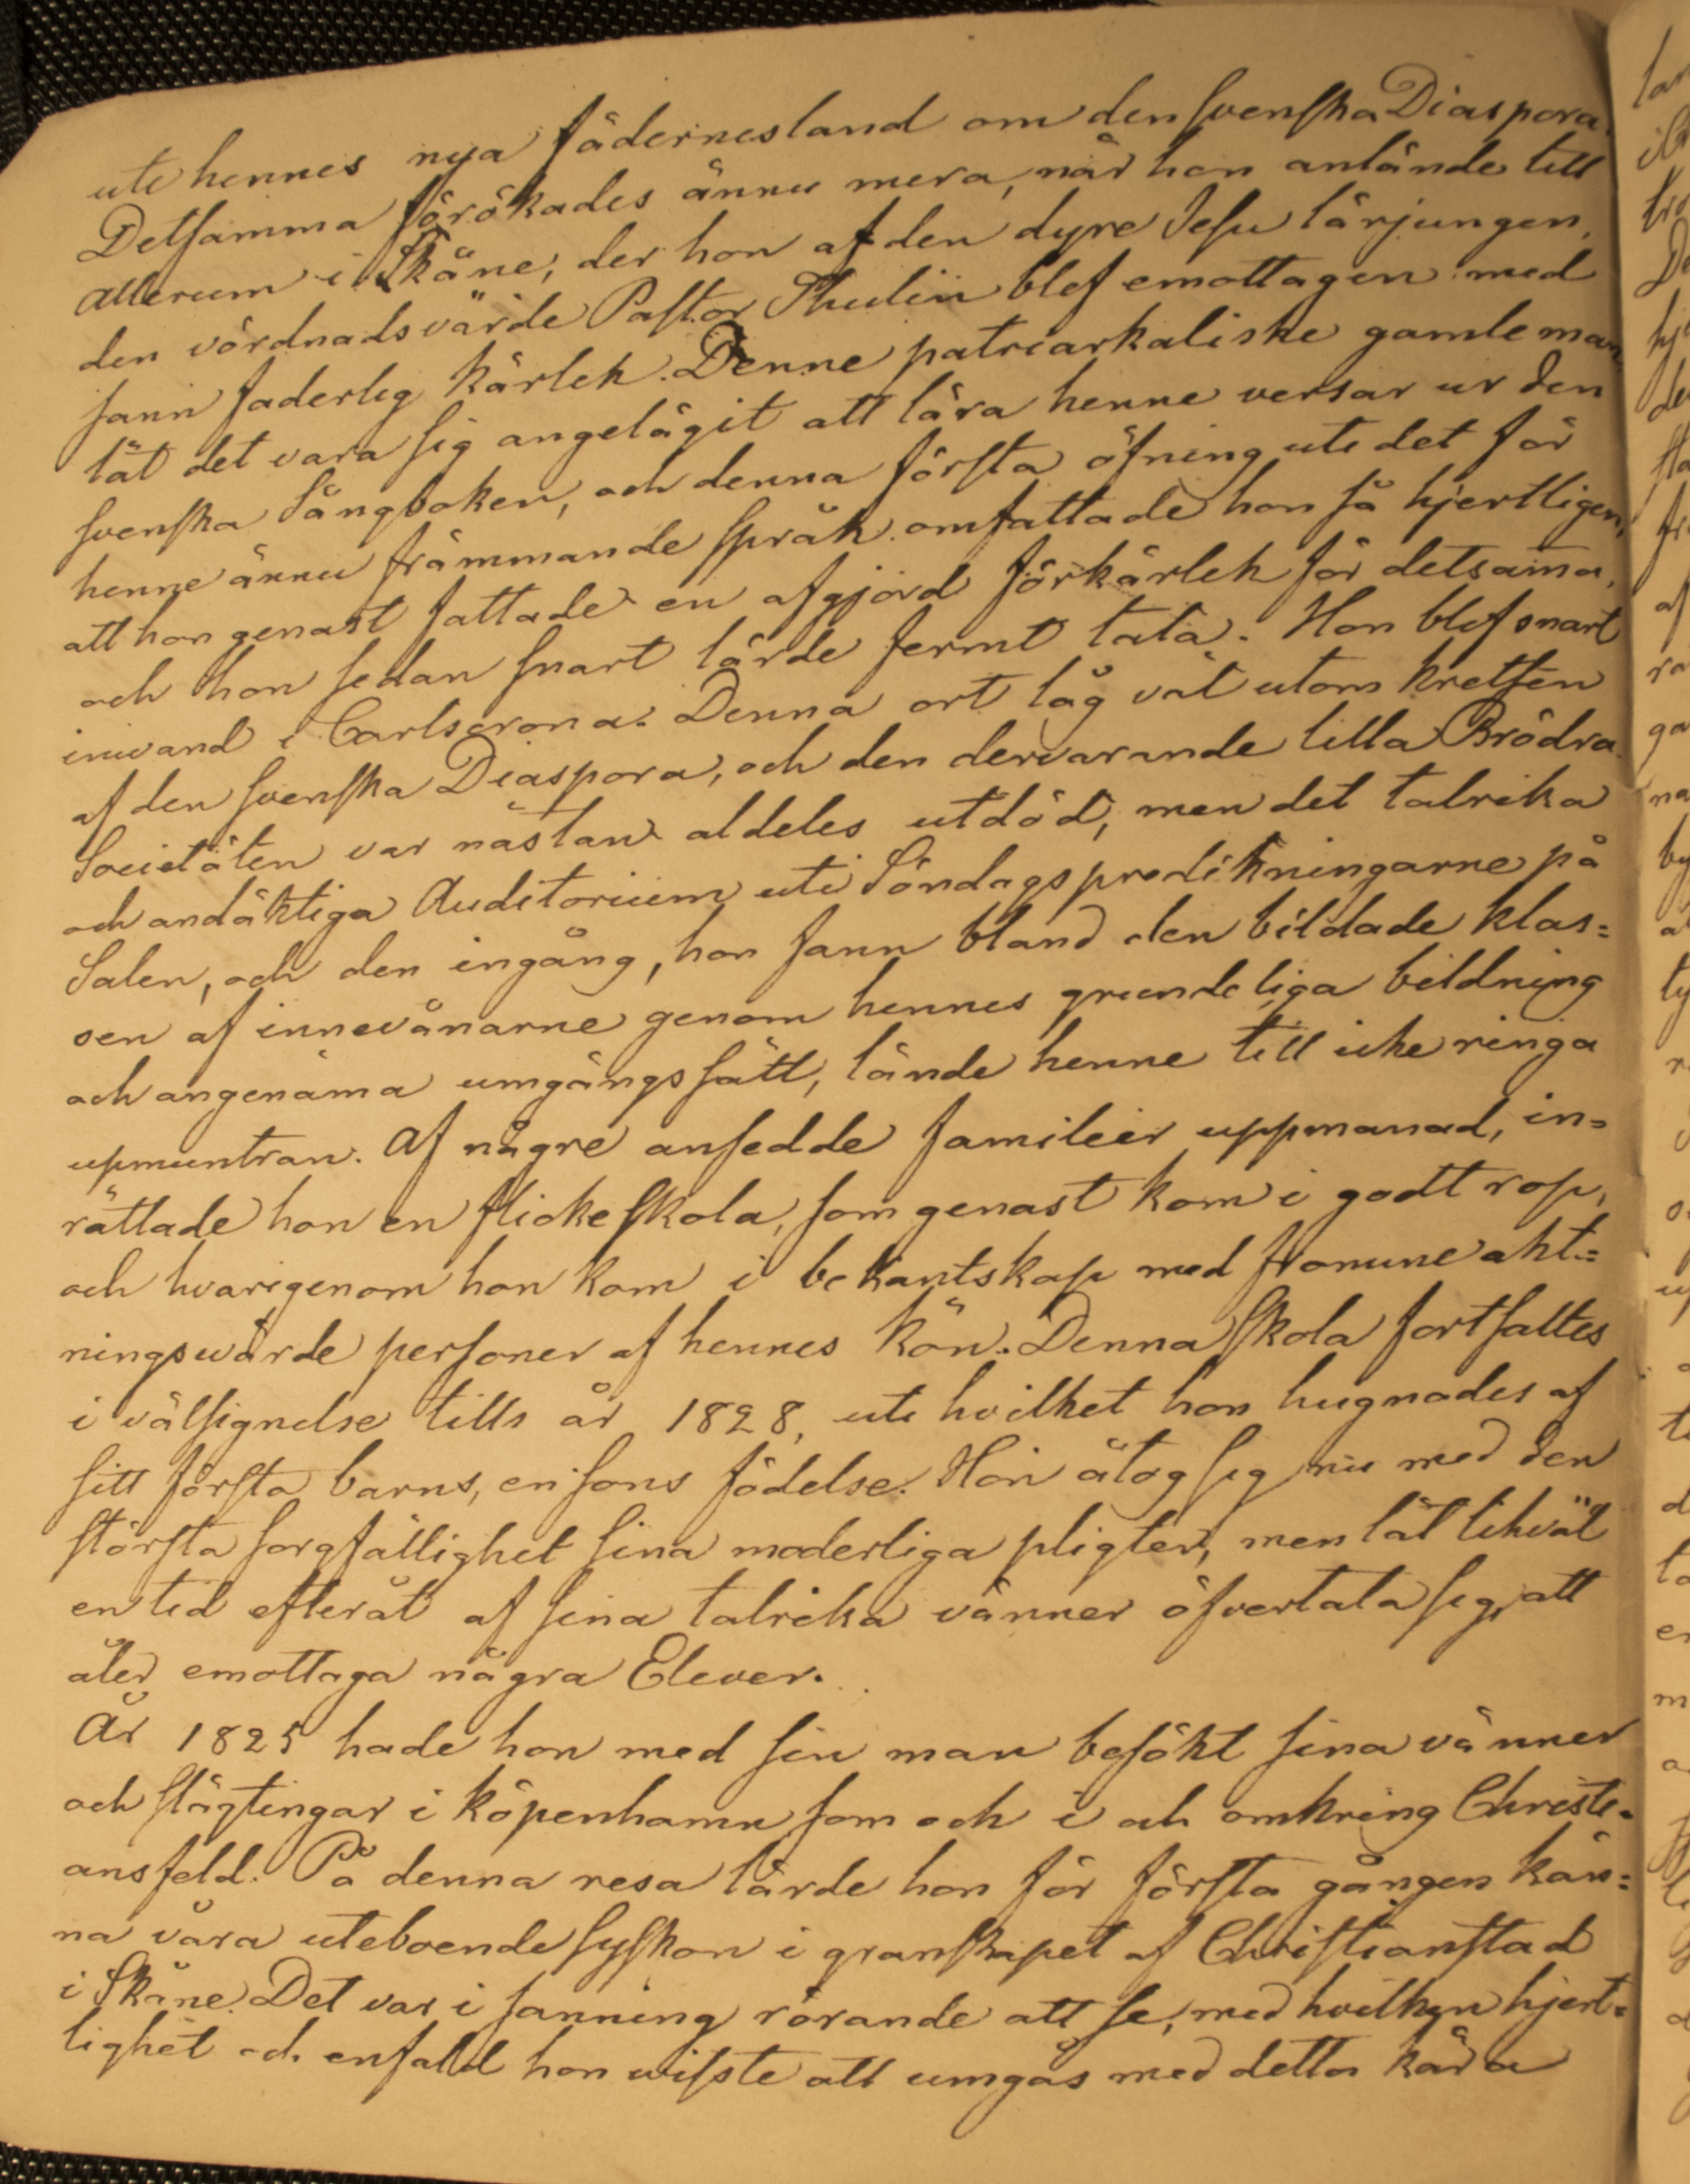 uti hennes nya fädernesland om den svenska Diaspora.
Detsamma förökades ännu mera, när hon anlände till
Allerum i Skåne, der hon af den dyre Jesu lärjungen,
den vördnadsvärde Pastor Thulin blef emottagen med
sann faderlig kärlek. Denne patriarkaliske gamle man
lät det vara sig angelägit att lära henne versar ur den
svenska Sångboken, och denna första öfning uti det för
henne ännu främmande språk omfattade hon så hjertligen,
att hon genast fattade en afgjord förkärlek för detsama,
och hon sedan snart lärde fermt tala. Hon blef snart
inivand i Carlscrona. Denna ort låg väl utom kretsen
af den svenska Diaspora, och den dervarande lilla Brödra
Societäten var nästan aldeles utdöd, men det talrika
och andäktiga Auditorium uti Söndagspredikningarne på
Salen, och den ingång, hon fann bland den bildade klas=
sen af innevånarne genom hennes grundeliga bildning
och angenäma umgängssätt, lände henne till icke ringa
upmuntran. Af några ansedde familier uppmanad, in=
rättade hon en flickeskola, som genast kom i godt rop,
och hvarigenom hon kom i bekantskap med fromme akt=
ningsvärde personer af hennes kön. Denna skola fortsattes
i välsignelse tills år 1828, uti hvilket hon hugnades af
sitt första barns, en sons födelse. Hon åtog sig nu med den
största sorgfällighet sina moderliga pligter, men lät likväl
en tid efteråt af sina talrika vänner öfvertala sig, att
åter emottaga några Elever.
År 1825 hade hon med sin man besökt sina vänner
och slägtingar i Köpenhamn som och i och omkring Christi=
ansfeld. På denna resa lärde hon för första gången kän=
na våra uteboende syskon i granskapet af Christianstad
i Skåne. Det var i sanning rörande att se, med hvilken hjert=
lighet och enfald hon wisste att umgås med detta kära